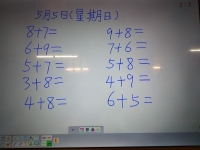 5月5日(星期日)
8+7=
6+9=
5+7=
3+8=
4+8=
9+8=
7+6=
5+8=
4+9=
6+5=